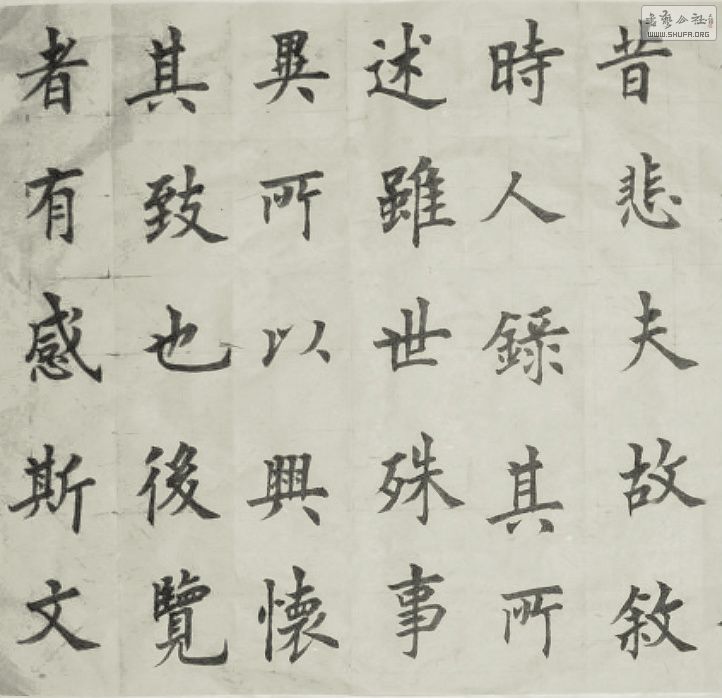 昔悲夫故敘
時人錄其所
述雖世殊事
異所以興懷
其致也後覽
者有感斯文
WWW.SHUFA.ORG